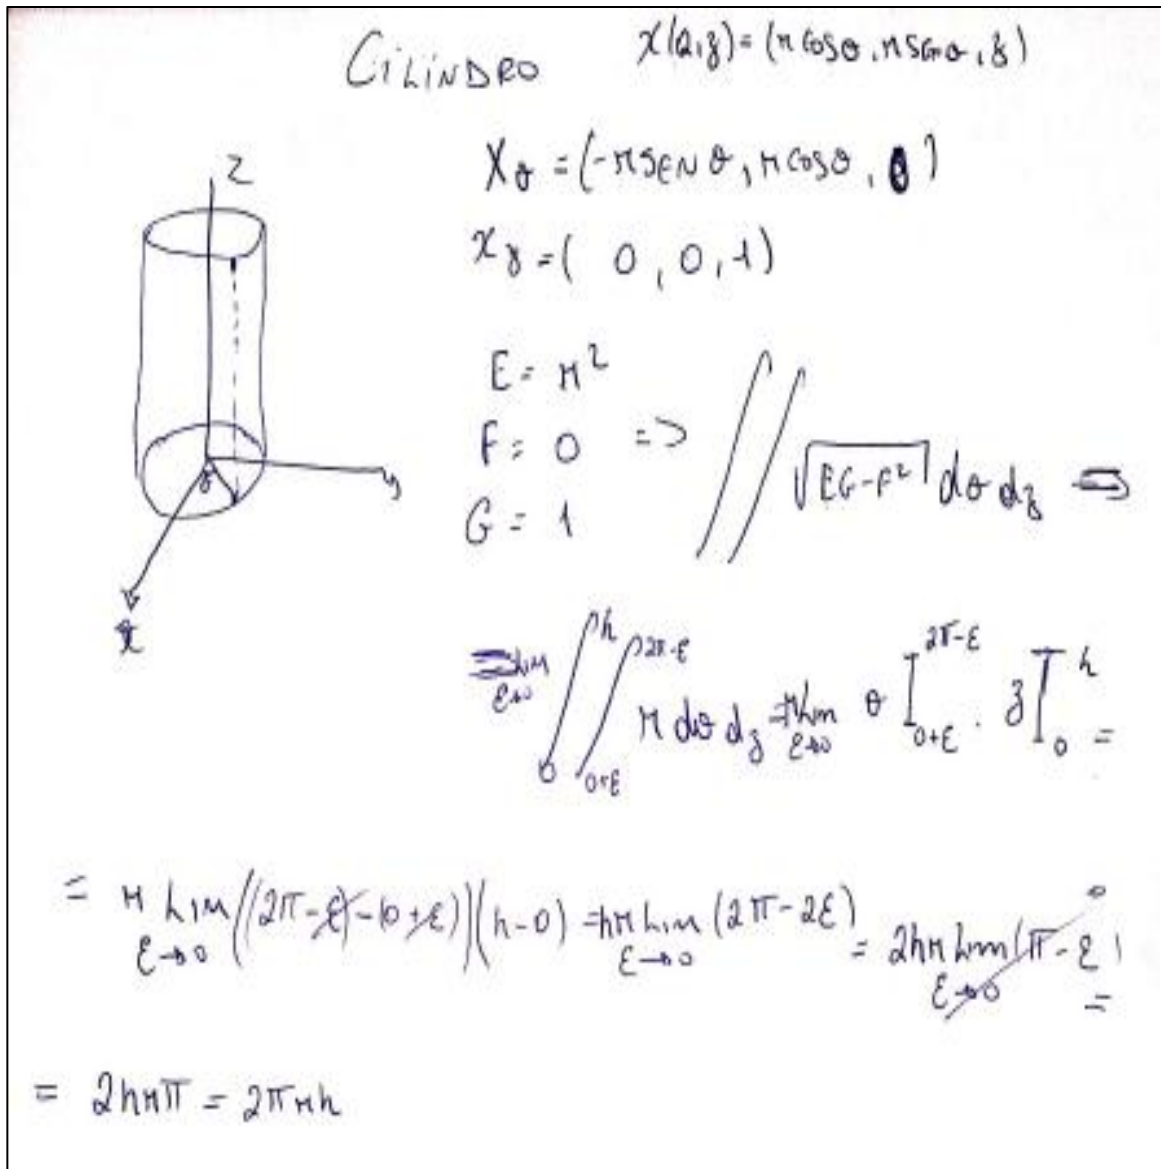 CILINDRO    x(θ,z)=(r cosθ, r senθ, z)
Xθ = (-r SEN θ, r cosθ, 0)
xz = ( 0, 0, 1)
z
y
θ
x
E = r²
F = 0 => ∬ √(EG-F²) dθ dz =
G = 1
= lim ε→0 ∫₀^h ∫_{0+ε}^{2π-ε} r dθ dz = r lim ε→0 θ ]_{0+ε}^{2π-ε} . z ]_0^h =
= r Lim ε→0 ((2π-ε)-(0+ε))(h-0) = hr Lim ε→0 (2π-2ε) = 2hr Lim ε→0 (π-ε) 0 =
= 2hrπ = 2πrh